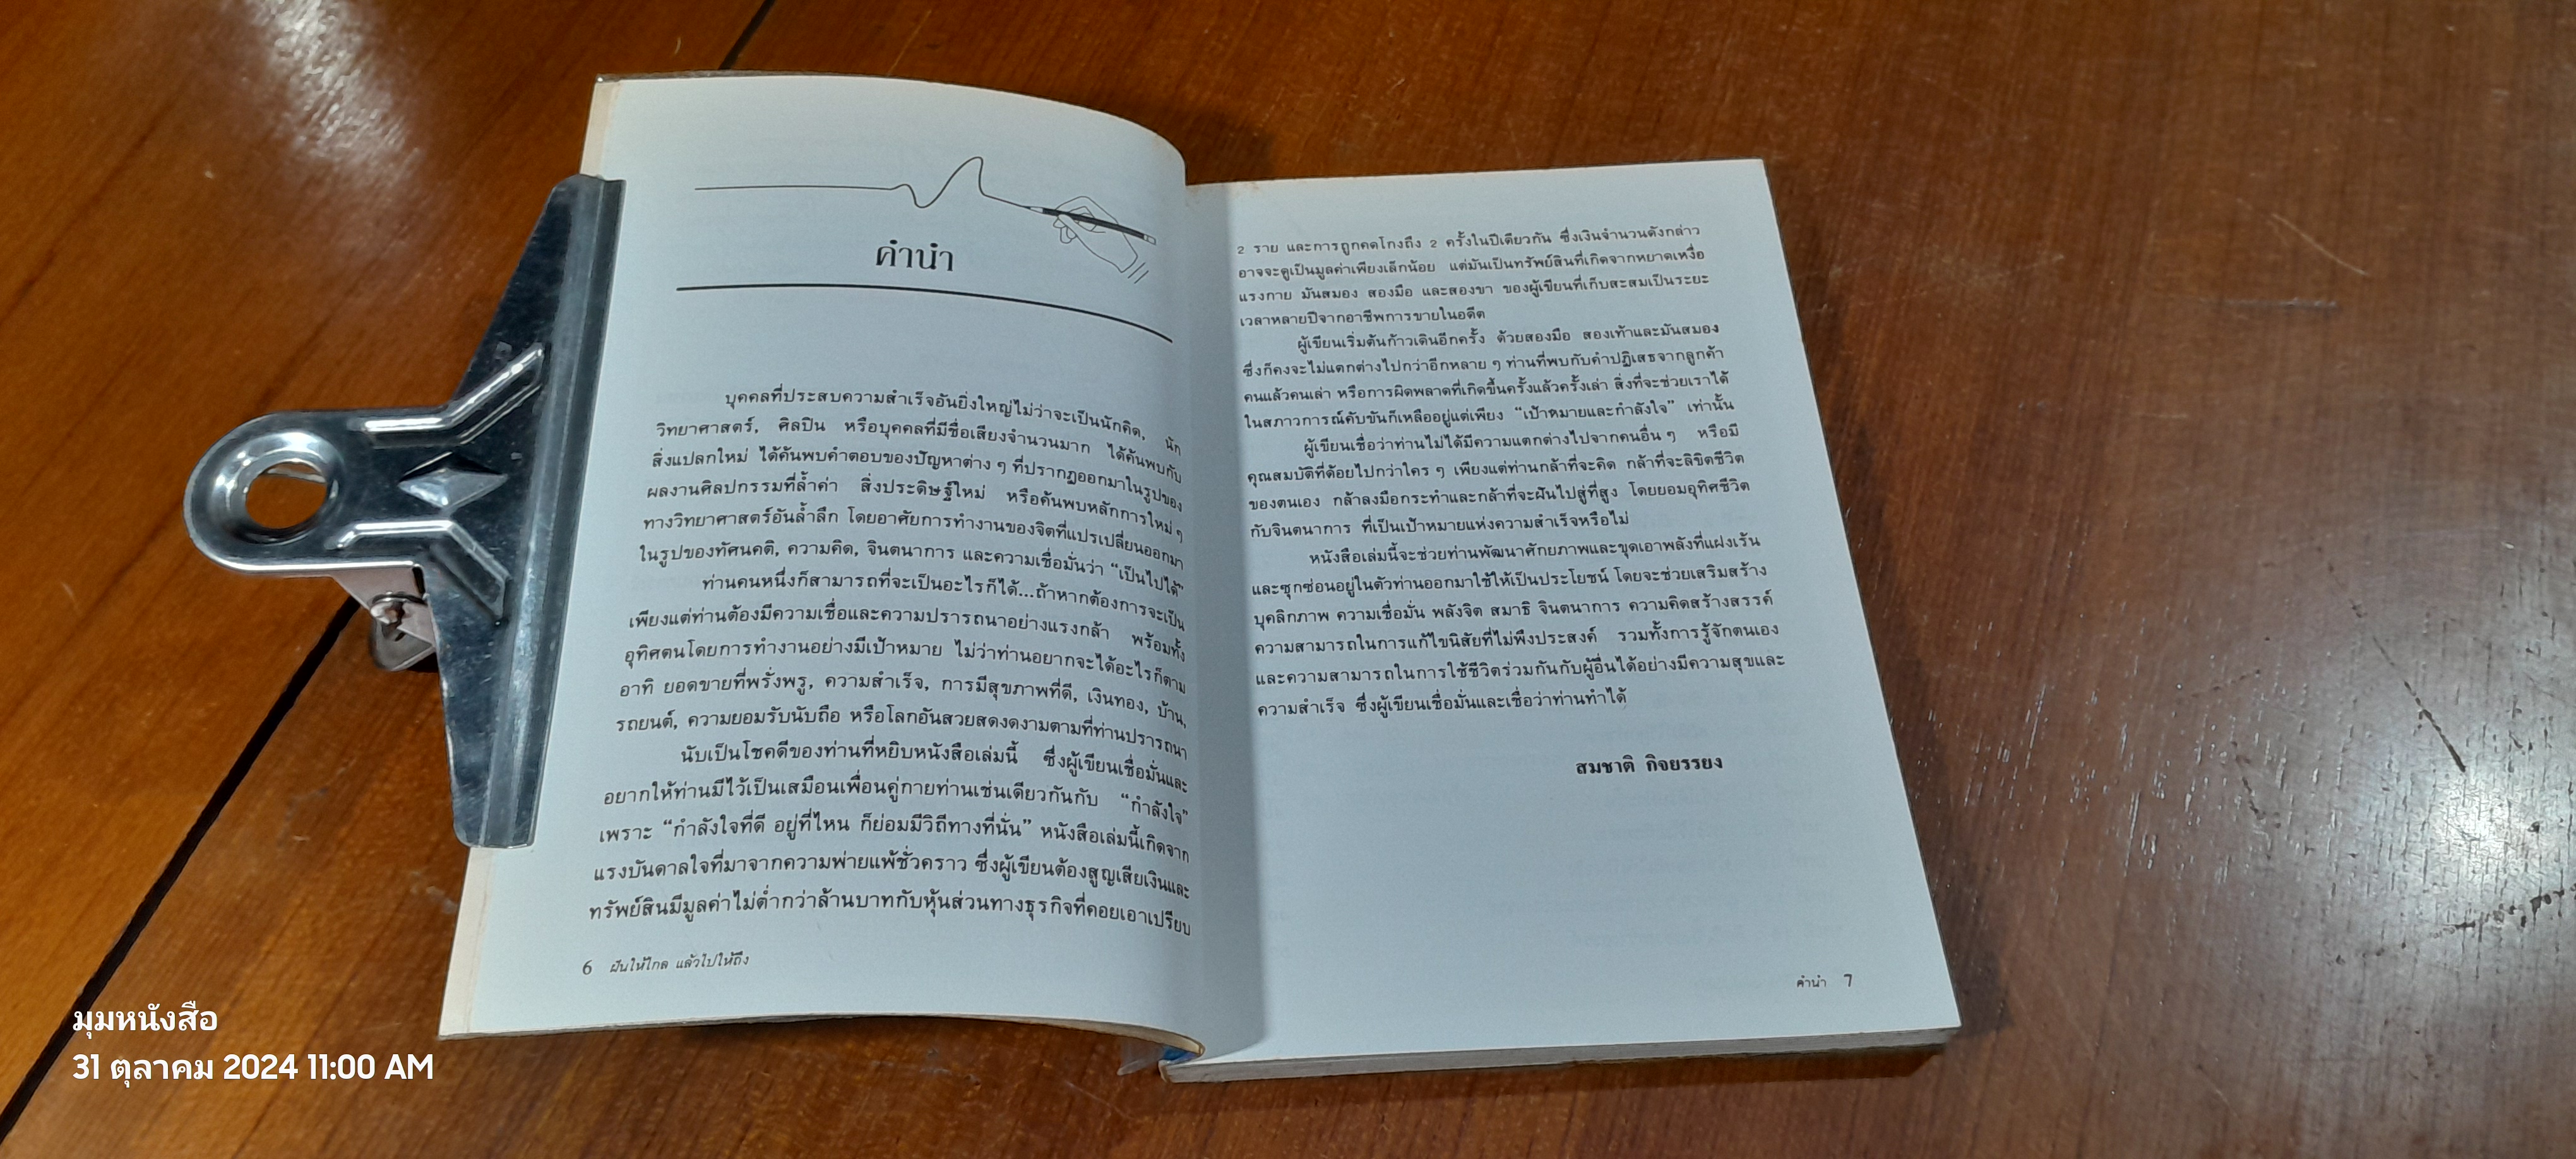 คำนำ
บุคคลที่ประสบความสำเร็จอันยิ่งใหญ่ไม่ว่าจะเป็นนักคิด, นัก
วิทยาศาสตร์, ศิลปิน หรือบุคคลที่มีชื่อเสียงจำนวนมาก ได้ค้นพบกับ
สิ่งแปลกใหม่ ได้ค้นพบคำตอบของปัญหาต่าง ๆ ที่ปรากฏออกมาในรูปของ
ผลงานศิลปกรรมที่ล้ำค่า สิ่งประดิษฐ์ใหม่ หรือค้นพบหลักการใหม่ ๆ
ทางวิทยาศาสตร์อันล้ำลึก โดยอาศัยการทำงานของจิตที่แปรเปลี่ยนออกมา
ในรูปของทัศนคติ, ความคิด, จินตนาการ และความเชื่อมั่นว่า “เป็นไปได้”
ท่านคนหนึ่งก็สามารถที่จะเป็นอะไรก็ได้...ถ้าหากต้องการจะเป็น
เพียงแต่ท่านต้องมีความเชื่อและความปรารถนาอย่างแรงกล้า พร้อมทั้ง
อุทิศตนโดยการทำงานอย่างมีเป้าหมาย ไม่ว่าท่านอยากจะได้อะไรก็ตาม
อาทิ ยอดขายที่พรั่งพรู, ความสำเร็จ, การมีสุขภาพที่ดี, เงินทอง, บ้าน,
รถยนต์, ความยอมรับนับถือ หรือโลกอันสวยสดงดงามตามที่ท่านปรารถนา
นับเป็นโชคดีของท่านที่หยิบหนังสือเล่มนี้ ซึ่งผู้เขียนเชื่อมั่นและ
อยากให้ท่านมีไว้เป็นเสมือนเพื่อนคู่กายท่านเช่นเดียวกันกับ “กำลังใจ”
เพราะ “กำลังใจที่ดี อยู่ที่ไหน ก็ย่อมมีวิถีทางที่นั่น” หนังสือเล่มนี้เกิดจาก
แรงบันดาลใจที่มาจากความพ่ายแพ้ชั่วคราว ซึ่งผู้เขียนต้องสูญเสียเงินและ
ทรัพย์สินมีมูลค่าไม่ต่ำกว่าล้านบาทกับหุ้นส่วนทางธุรกิจที่คอยเอาเปรียบ
6 ฝันให้ไกล แล้วไปให้ถึง
2 ราย และการถูกคดโกงถึง 2 ครั้งในปีเดียวกัน ซึ่งเงินจำนวนดังกล่าว
อาจจะดูเป็นมูลค่าเพียงเล็กน้อย แต่มันเป็นทรัพย์สินที่เกิดจากหยาดเหงื่อ
แรงกาย มันสมอง สองมือ และสองขา ของผู้เขียนที่เก็บสะสมเป็นระยะ
เวลาหลายปีจากอาชีพการขายในอดีต
ผู้เขียนเริ่มต้นก้าวเดินอีกครั้ง ด้วยสองมือ สองเท้าและมันสมอง
ซึ่งก็คงจะไม่แตกต่างไปกว่าอีกหลาย ๆ ท่านที่พบกับคำปฏิเสธจากลูกค้า
คนแล้วคนเล่า หรือการผิดพลาดที่เกิดขึ้นครั้งแล้วครั้งเล่า สิ่งที่จะช่วยเราได้
ในสภาวการณ์คับขันก็เหลืออยู่แต่เพียง “เป้าหมายและกำลังใจ” เท่านั้น
ผู้เขียนเชื่อว่าท่านไม่ได้มีความแตกต่างไปจากคนอื่น ๆ หรือมี
คุณสมบัติที่ด้อยไปกว่าใคร ๆ เพียงแต่ท่านกล้าที่จะคิด กล้าที่จะลิขิตชีวิต
ของตนเอง กล้าลงมือกระทำและกล้าที่จะฝันไปสู่ที่สูง โดยยอมอุทิศชีวิต
กับจินตนาการ ที่เป็นเป้าหมายแห่งความสำเร็จหรือไม่
หนังสือเล่มนี้จะช่วยท่านพัฒนาศักยภาพและขุดเอาพลังที่แฝงเร้น
และซุกซ่อนอยู่ในตัวท่านออกมาใช้ให้เป็นประโยชน์ โดยจะช่วยเสริมสร้าง
บุคลิกภาพ ความเชื่อมั่น พลังจิต สมาธิ จินตนาการ ความคิดสร้างสรรค์
ความสามารถในการแก้ไขนิสัยที่ไม่พึงประสงค์ รวมทั้งการรู้จักตนเอง
และความสามารถในการใช้ชีวิตร่วมกันกับผู้อื่นได้อย่างมีความสุขและ
ความสำเร็จ ซึ่งผู้เขียนเชื่อมั่นและเชื่อว่าท่านทำได้
สมชาติ กิจยรรยง
คำนำ 7
มุมหนังสือ
31 ตุลาคม 2024 11:00 AM